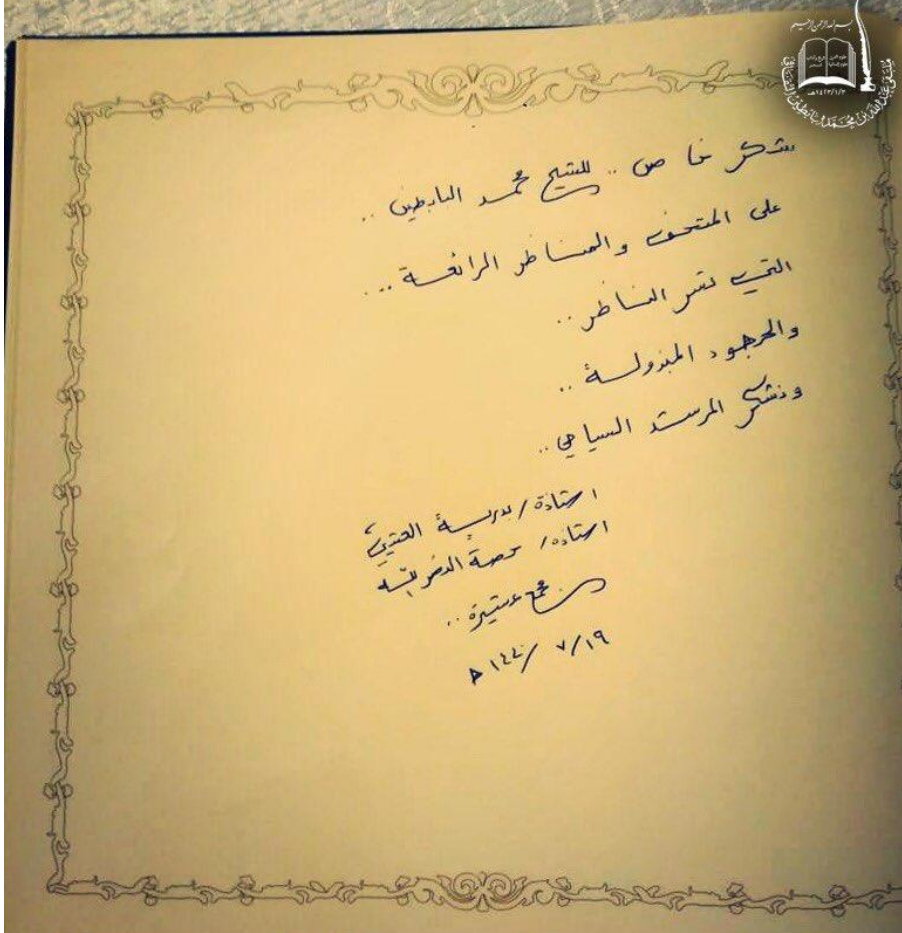 بسم الله الرحمن الرحيم
شكر خاص .. للشيخ محمد البابطين ..
على المتحف والمناظر الرائعة ...
التي تسر الناظر ..
والجهود المبذولة ..
ونشكر المرشد السياحي ..
استاذة / بدرية العتيبي
استاذة / حصة
مجمع عشيرة ..
١٩/ ٧/ ١٤٤٠ هـ